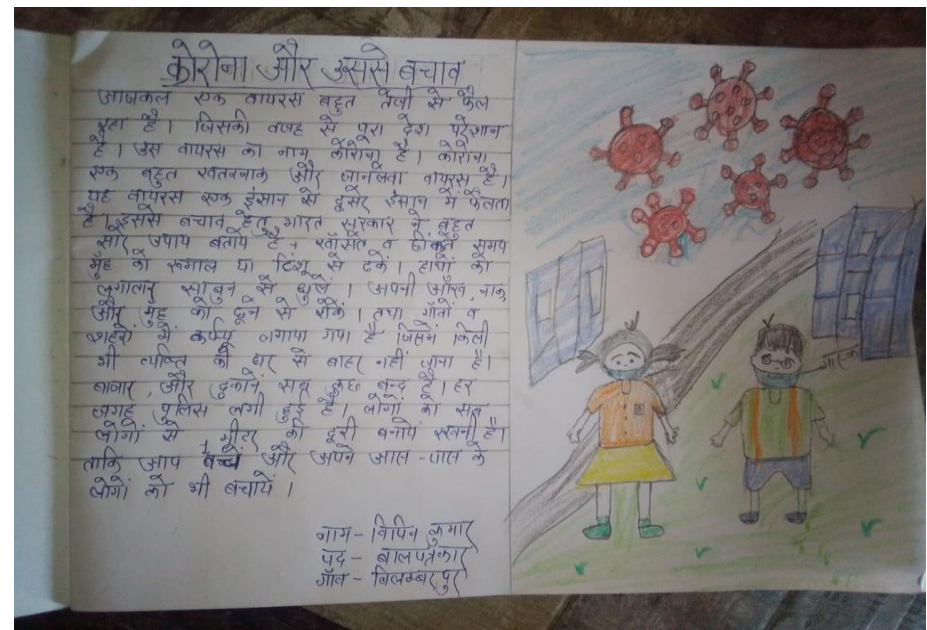 कोरोना और उससे बचाव
आजकल एक वायरस बहुत तेजी से फैल
रहा है। जिसकी वजह से पूरा देश परेशान
है। उस वायरस का नाम कोरोना है। कोरोना
एक बहुत खतरनाक और जानलेवा वायरस है।
यह वायरस एक इंसान से दूसरे इंसान में फैलता
है। इससे बचाव हेतु भारत सरकार ने बहुत
सारे उपाय बताये है - खाँसते व छींकते समय
मुँह को रूमाल या टिशू से ढकें। हाथों को
लगातार साबुन से धुलें। अपनी आँख, नाक
और मुँह को छूने से रोकें। तथा गाँवो व
शहरों में कर्फ्यू लगाया गया है जिसमें किसी
भी व्यक्ति को घर से बाहर नहीं जाना है।
बाजार, और दुकानें सब कुछ बन्द है। हर
जगह पुलिस लगी हुई है। लोगों को सब
लोगों से 1 मीटर की दूरी बनाये रखनी है।
ताकि आप बचें और अपने आस-पास के
लोगों को भी बचायें।
नाम - विपिन कुमार
पद - बालपत्रकार
गाँव - बिलम्बरपुर
मास्क